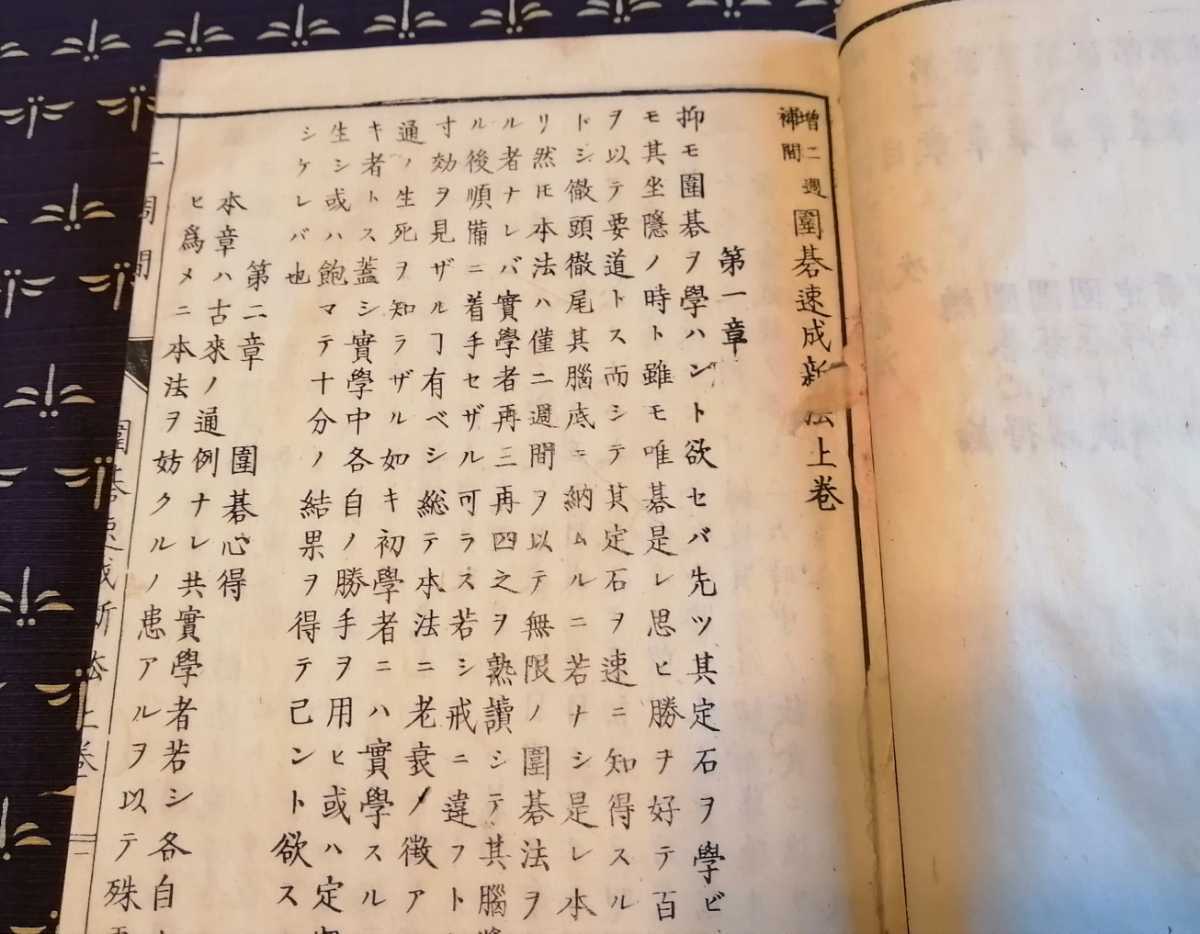 増補 二週間 圍碁速成新法上巻
第一章
抑モ圍碁ヲ學ハント欲セバ先ツ其定石ヲ學ビ
モ其坐隱ノ時ト雖モ唯碁是レ思ヒ勝ヲ好テ百
ヲ以テ要道トス而シテ其定石ヲ速ニ知得スル
ドシ徹頭徹尾其腦底ニ納ムルニ若ナシ是レ本
リ然モ本法ハ僅二週間ヲ以テ無限ノ圍碁法ヲ
ル者ナレバ實學者再三再四之ヲ熟讀シテ其腦
ル後順備ニ着手セザル可ラス若シ戒ニ違フト
寸効ヲ見ザルヿ有ベシ総テ本法ニ老衰ノ徴ア
通ノ生死ヲ知ラザル如キ初學者ニハ實學スル
キ者トス蓋シ實學中各自ノ勝手ヲ用ヒ或ハ定
生シ或ハ飽マテ十分ノ結果ヲ得テ己ント欲ス
シケレバ也
第二章 圍碁心得
本章ハ古來ノ通例ナレ共實學者若シ各自
ヒ爲メニ本法ヲ妨クルノ患アルヲ以テ殊
二週間 圍碁速成新法上巻 一